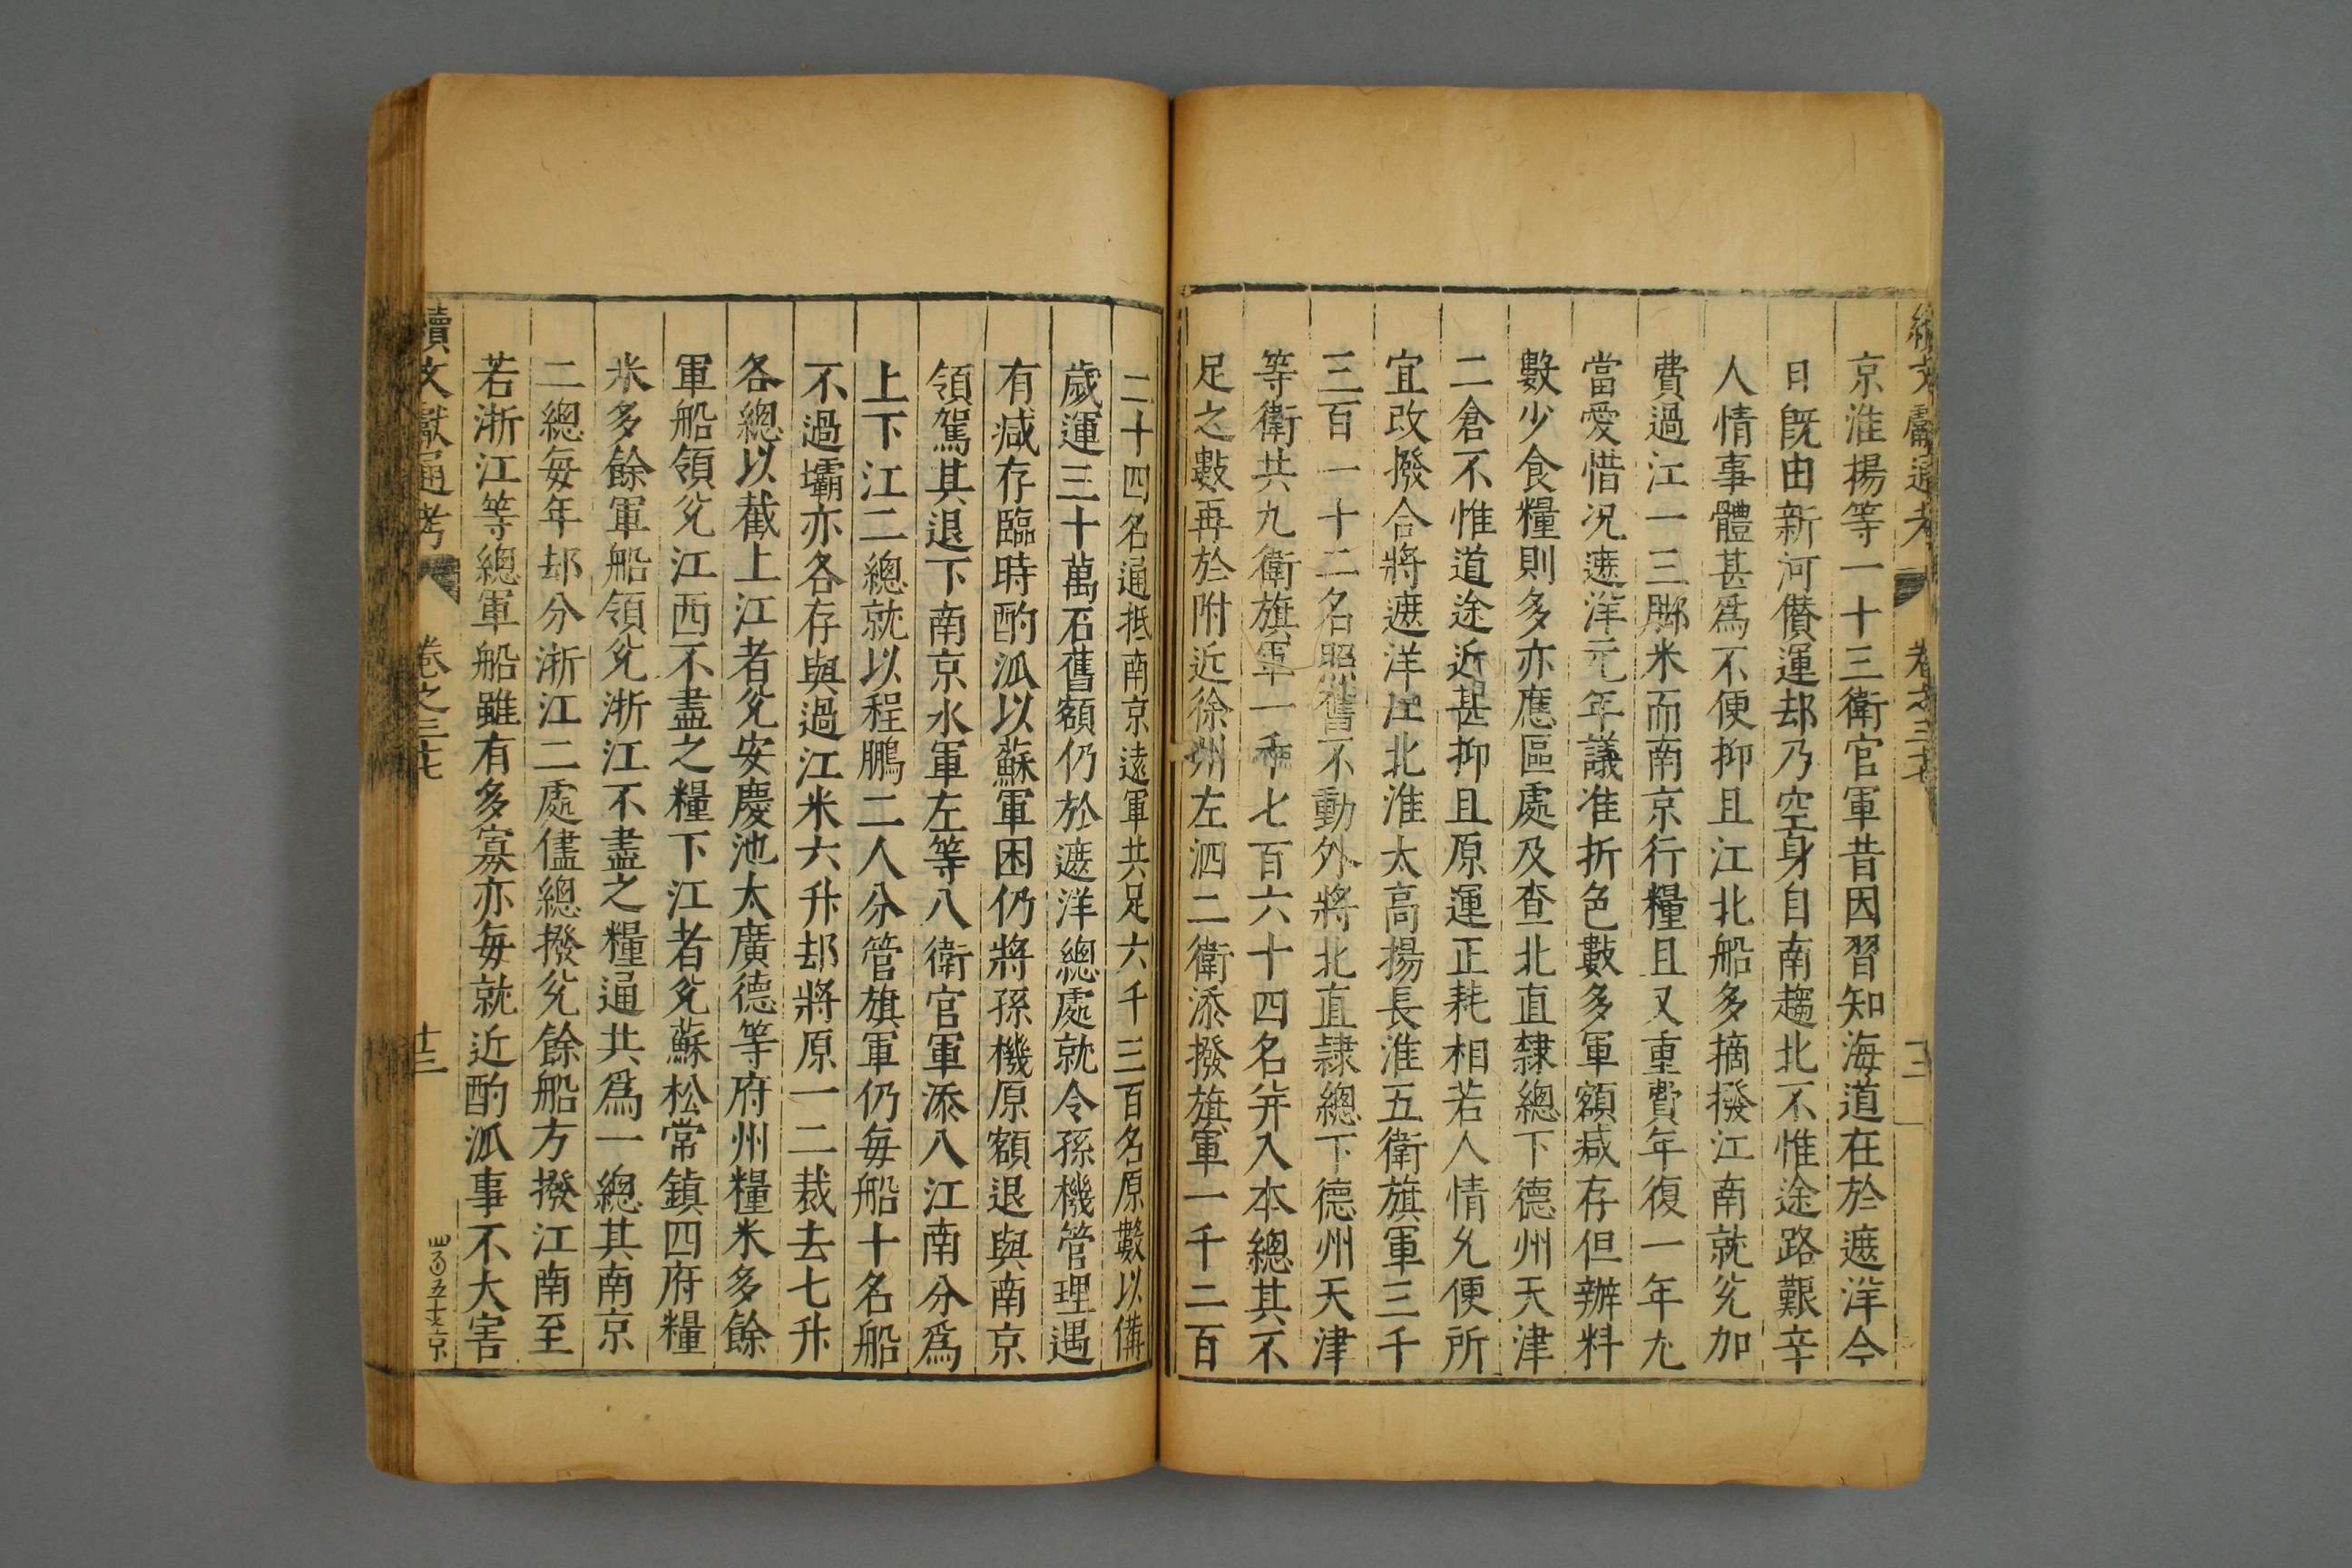 京淮揚等一十三衛官軍昔因習知海道在於遮洋今
日旣由新河儧運却乃空身自南趨北不惟途路艱辛
人情事體甚爲不便抑且江北船多摘撥江南就兊加
費過江一三脚米而南京行糧且又重費年復一年尢
當愛惜况遮洋元年議准折色數多軍額减存但辦料
數少食糧則多亦應區處及查北直隸總下德州天津
二倉不惟道途近甚抑且原運正耗相若人情允便所
宜改撥合將遮洋江北淮太高揚長淮五衛旗軍三千
三百一十二名照舊不動外將北直隷總下德州天津
等衛共九衛旗軍一千七百六十四名并入本總其不
足之數再於附近徐州左泗二衛添撥旗軍一千二百
二十四名通抵南京遠軍共足六千三百名原數以備
歲運三十萬石舊額仍於遮洋總處就令孫機管理遇
有减存臨時酌派以蘇軍困仍將孫機原額退與南京
領駕其退下南京水軍左等八衛官軍添入江南分爲
上下江二總就以程鵬二人分管旗軍仍每船十名船
不過壩亦各存與過江米六升却將原一二裁去七升
各總以截上江者兊安慶池太廣德等府州糧米多餘
軍船領兊江西不盡之糧下江者兊蘇松常鎮四府糧
米多餘軍船領兊浙江不盡之糧通共爲一總其南京
二總每年却分浙江二處儘總撥兊餘船方撥江南至
若浙江等總軍船雖有多寡亦每就近酌派事不大害
續文獻通考 卷之三七 十三